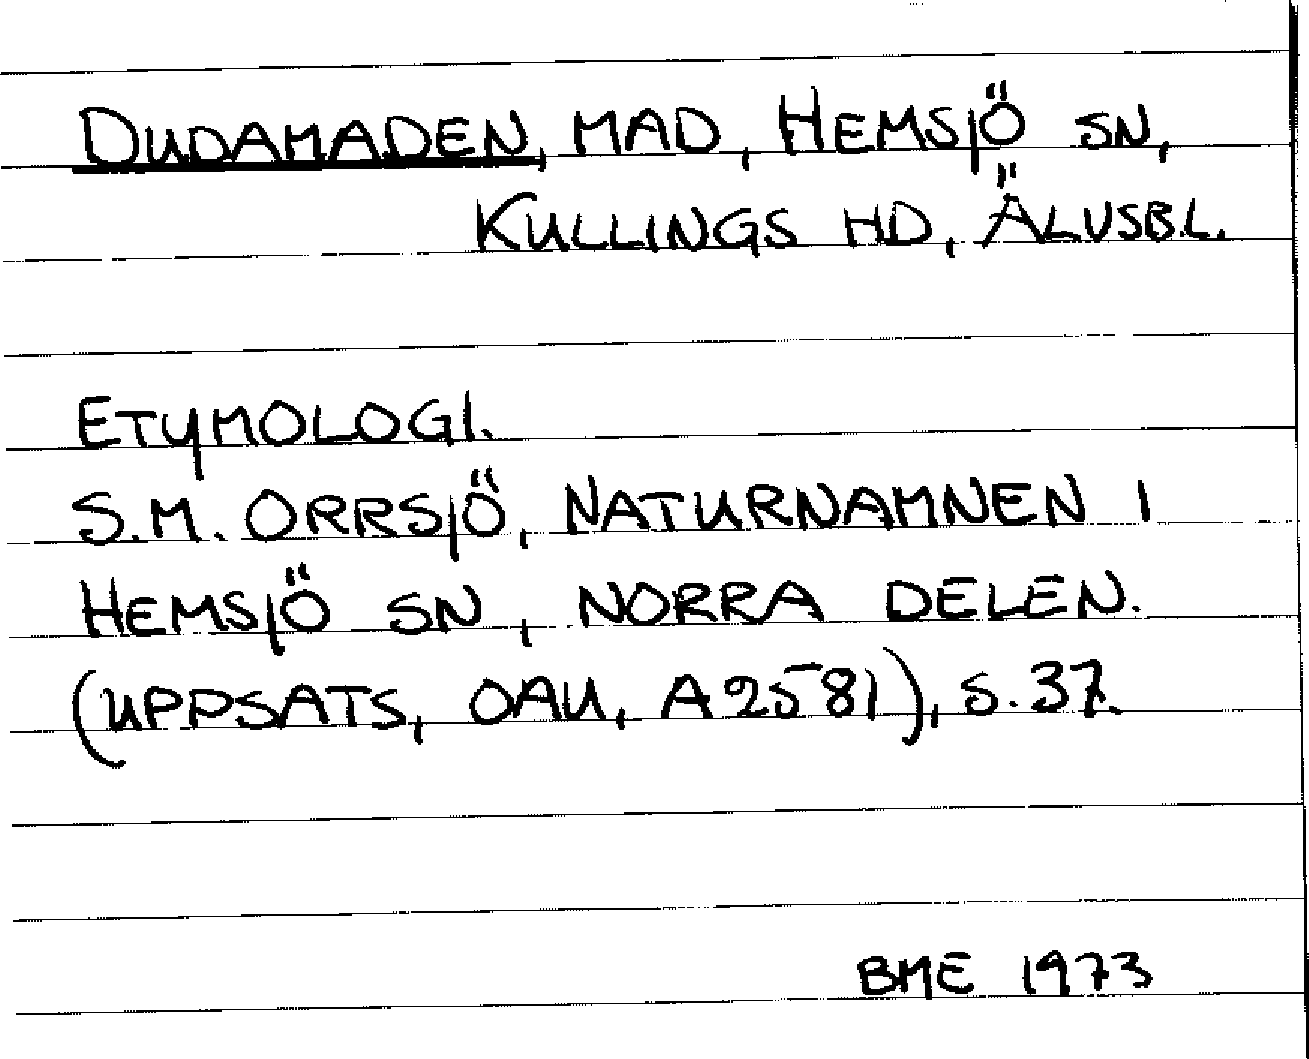 DUDAMADEN, MAD, HEMSJÖ SN,
KULLINGS HD, ÄLVSB.L.
ETYMOLOGI.
S.M. ORRSJÖ, NATURNAMNEN I
HEMSJÖ SN, NORRA DELEN.
(UPPSATS, OAU, A2581), S.37.
BME 1973